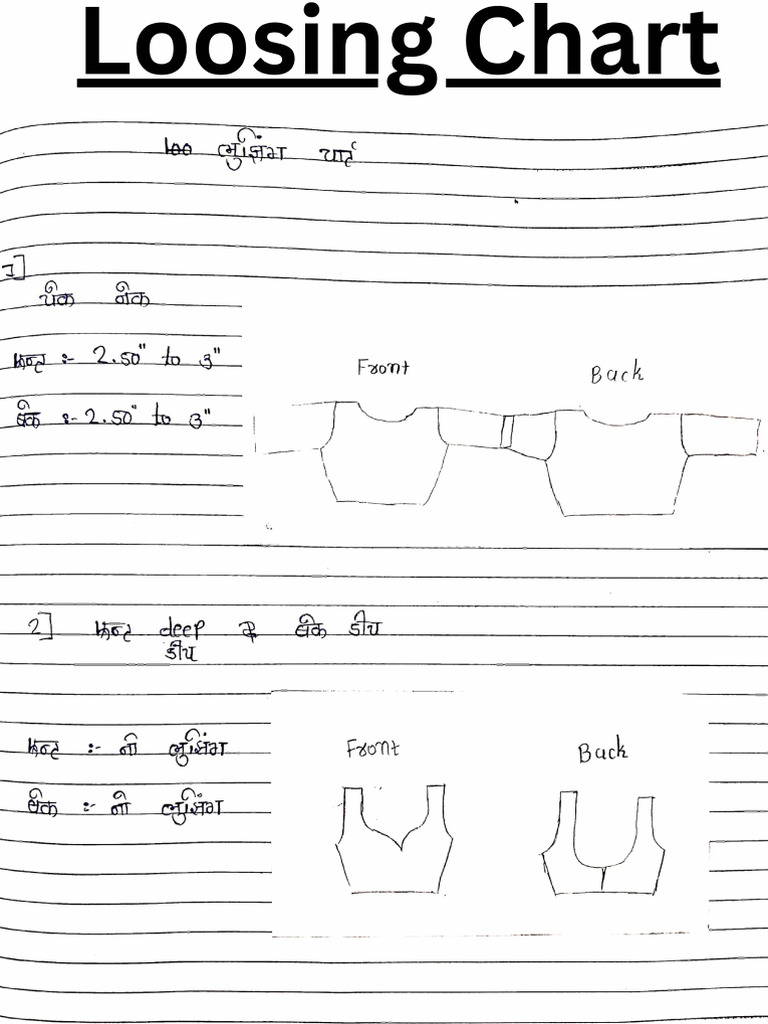 Loosing Chart
लुझिंग चार्ट
1]
पॅक नेक
फ्रन्ट :- 2.50" to 3"
बॅक :- 2.50" to 3"
Front
Back
2] फ्रन्ट deep व बॅक डीप
डीप
फ्रन्ट :- नो लुझिंग
बॅक :- नो लुझिंग
Front
Back